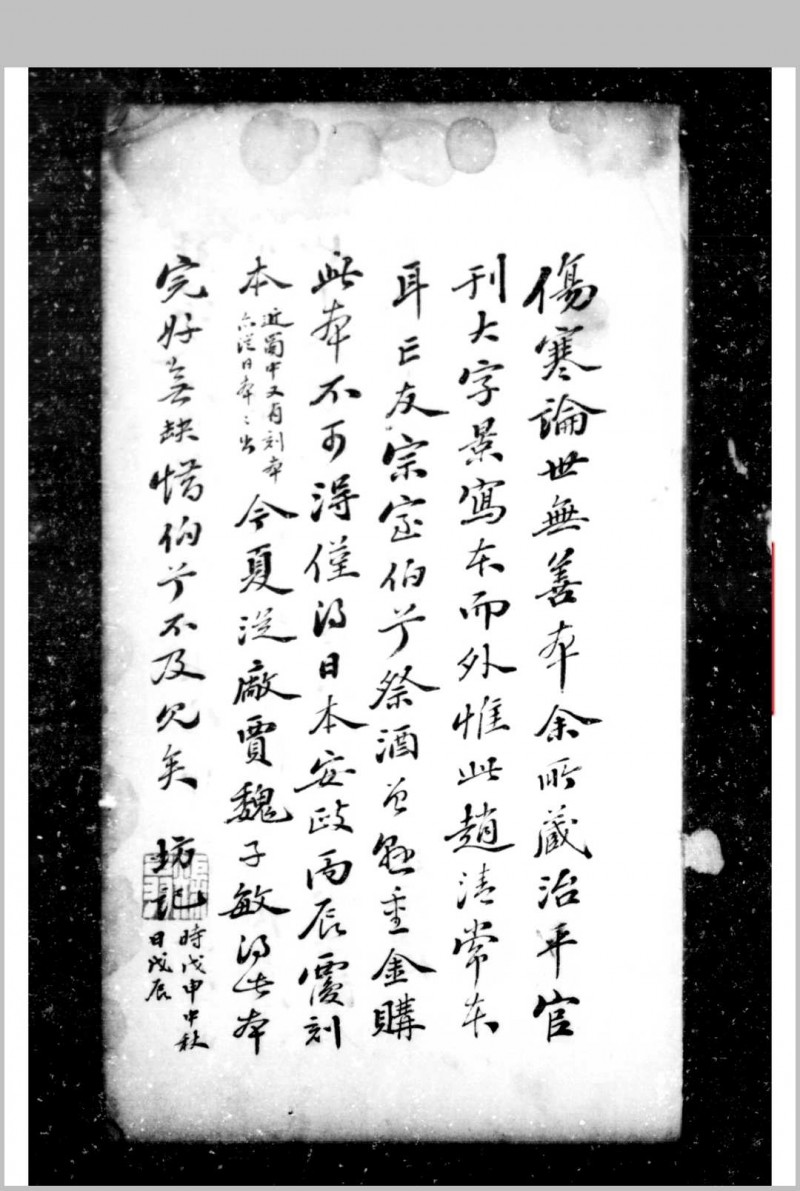 傷寒論世無善本余所藏治平官
刊大字景寫本而外惟此趙清常本
耳亡友宗室伯兮祭酒曾懸重金購
此本不可得僅得日本安政丙辰覆刻
本近蜀中又有刻本
亦從日本本出
今夏從廠賈魏子敏得此本
完好無缺惜伯兮不及見矣 坊記
時戊申中秋
日戊辰